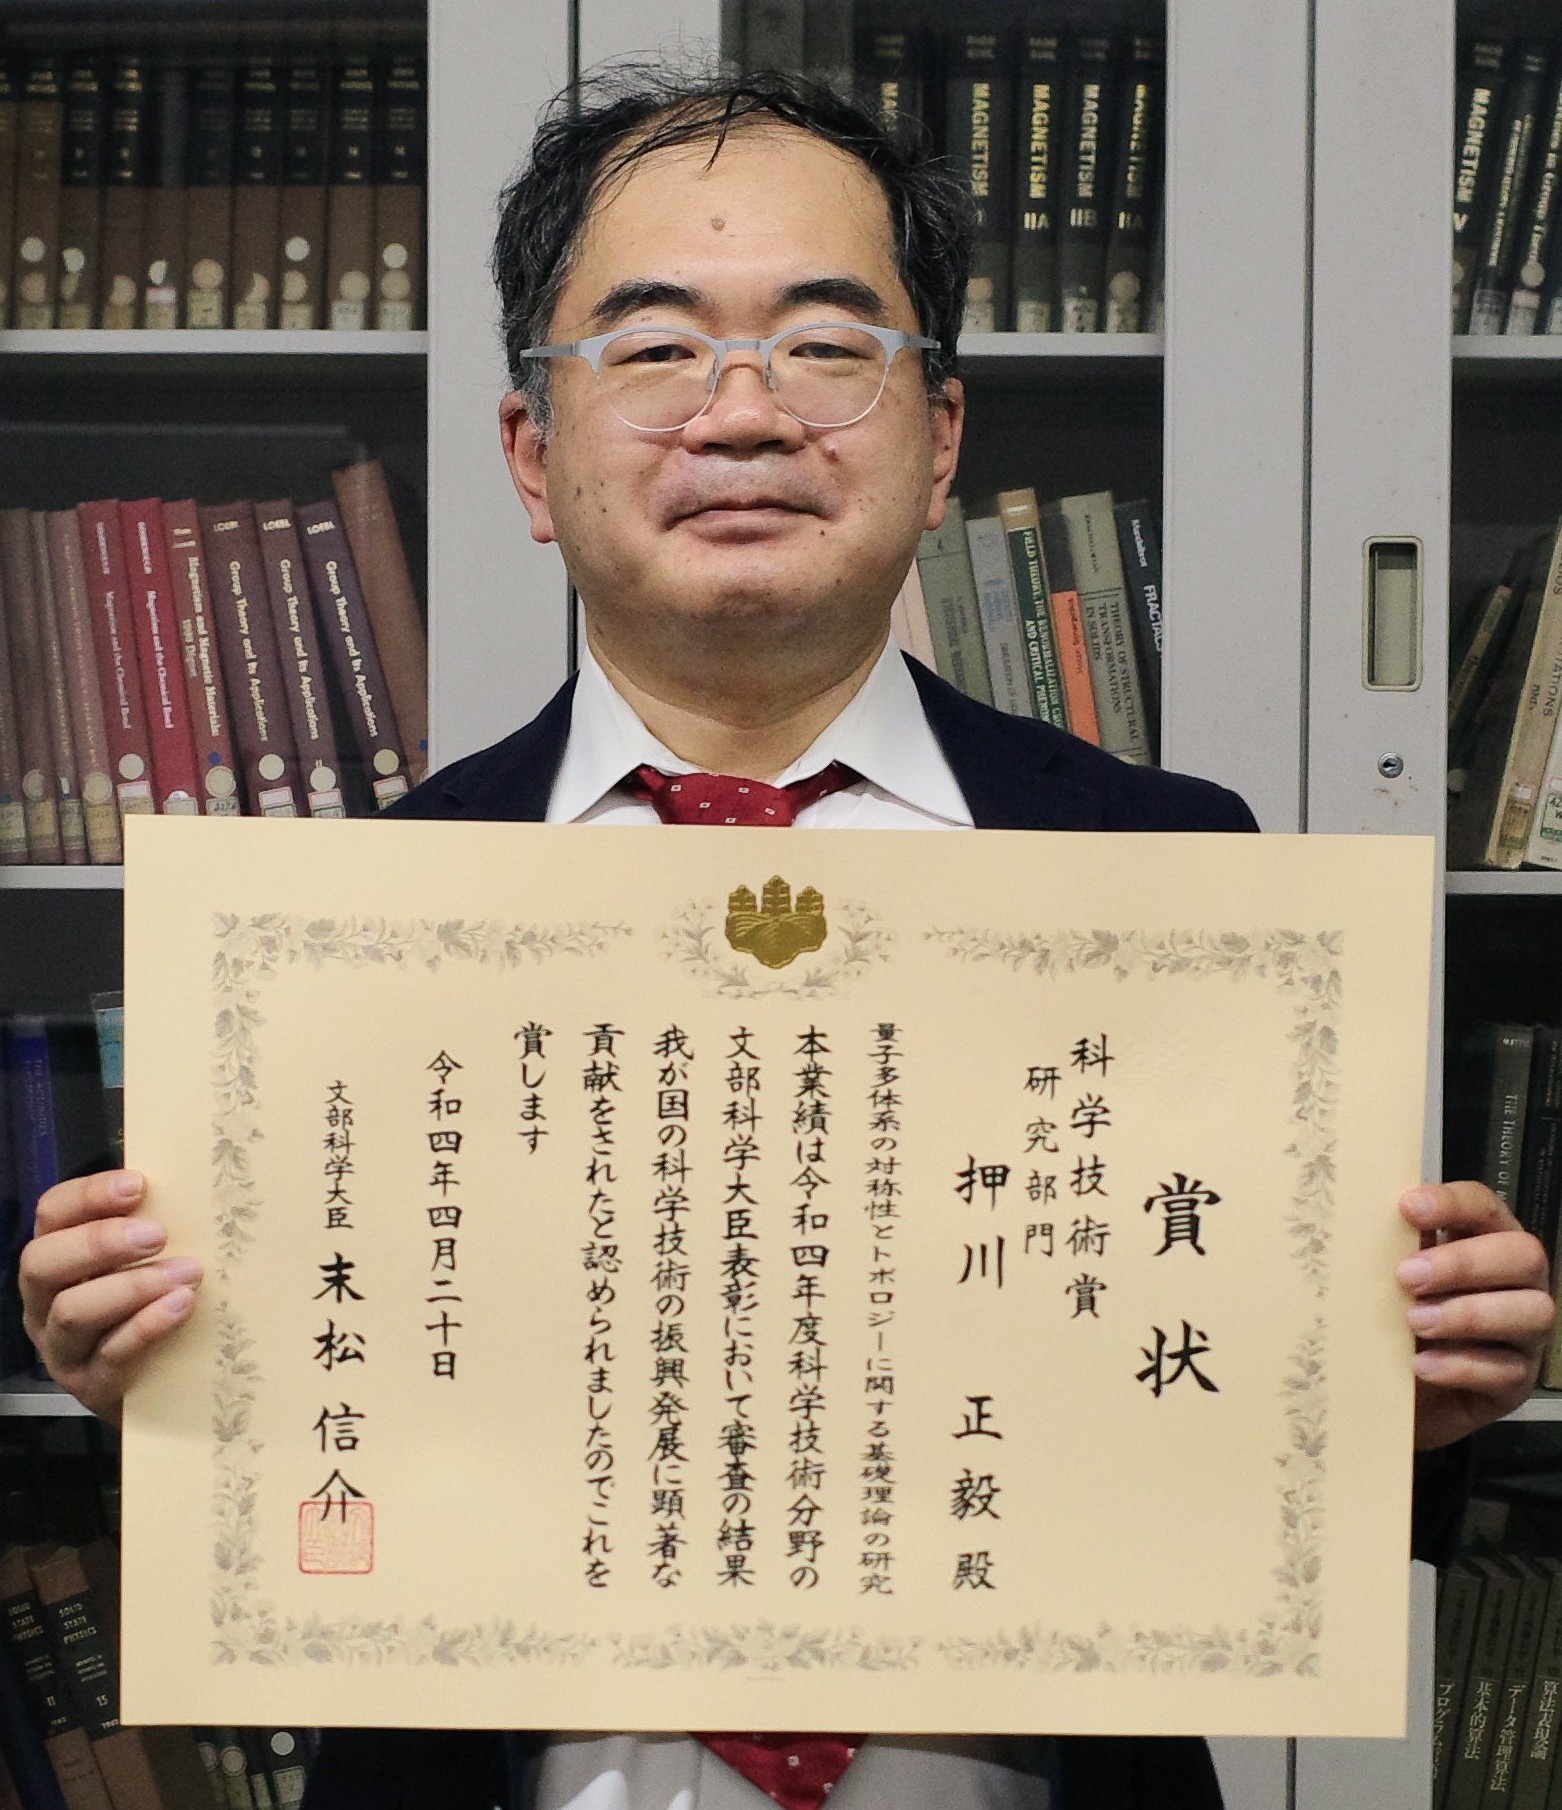 賞状
科学技術賞
研究部門
押川 正毅 殿
量子多体系の対称性とトポロジーに関する基礎理論の研究
本業績は令和四年度科学技術分野の
文部科学大臣表彰において審査の結果
我が国の科学技術の振興発展に顕著な
貢献をされたと認められましたのでこれを
賞します
令和四年四月二十日
文部科学大臣 末松信介
MAGNETISM
MAGNETISM IIA
MAGNETISM IIB
MAGNETISM IIA
MAGNETISM V
LOEBL Group Theory and Its Applications
LOEBL Group Theory and Its Applications
LOEBL Group Theory and Its Applications
Magnetism and the Chemical Bond
Magnetism and the Chemical Bond
Magnetism and Magnetic Materials:
1969 Digest
4
THEORY OF STRUCTURAL
TRANSFORMATIONS
IN SOLIDS
Mandelbrot FRACTALS
SOLID
STATE
PHYSICS
11
SOLID
STATE
PHYSICS
15
基本的算法
データ管理算法
算法表現論